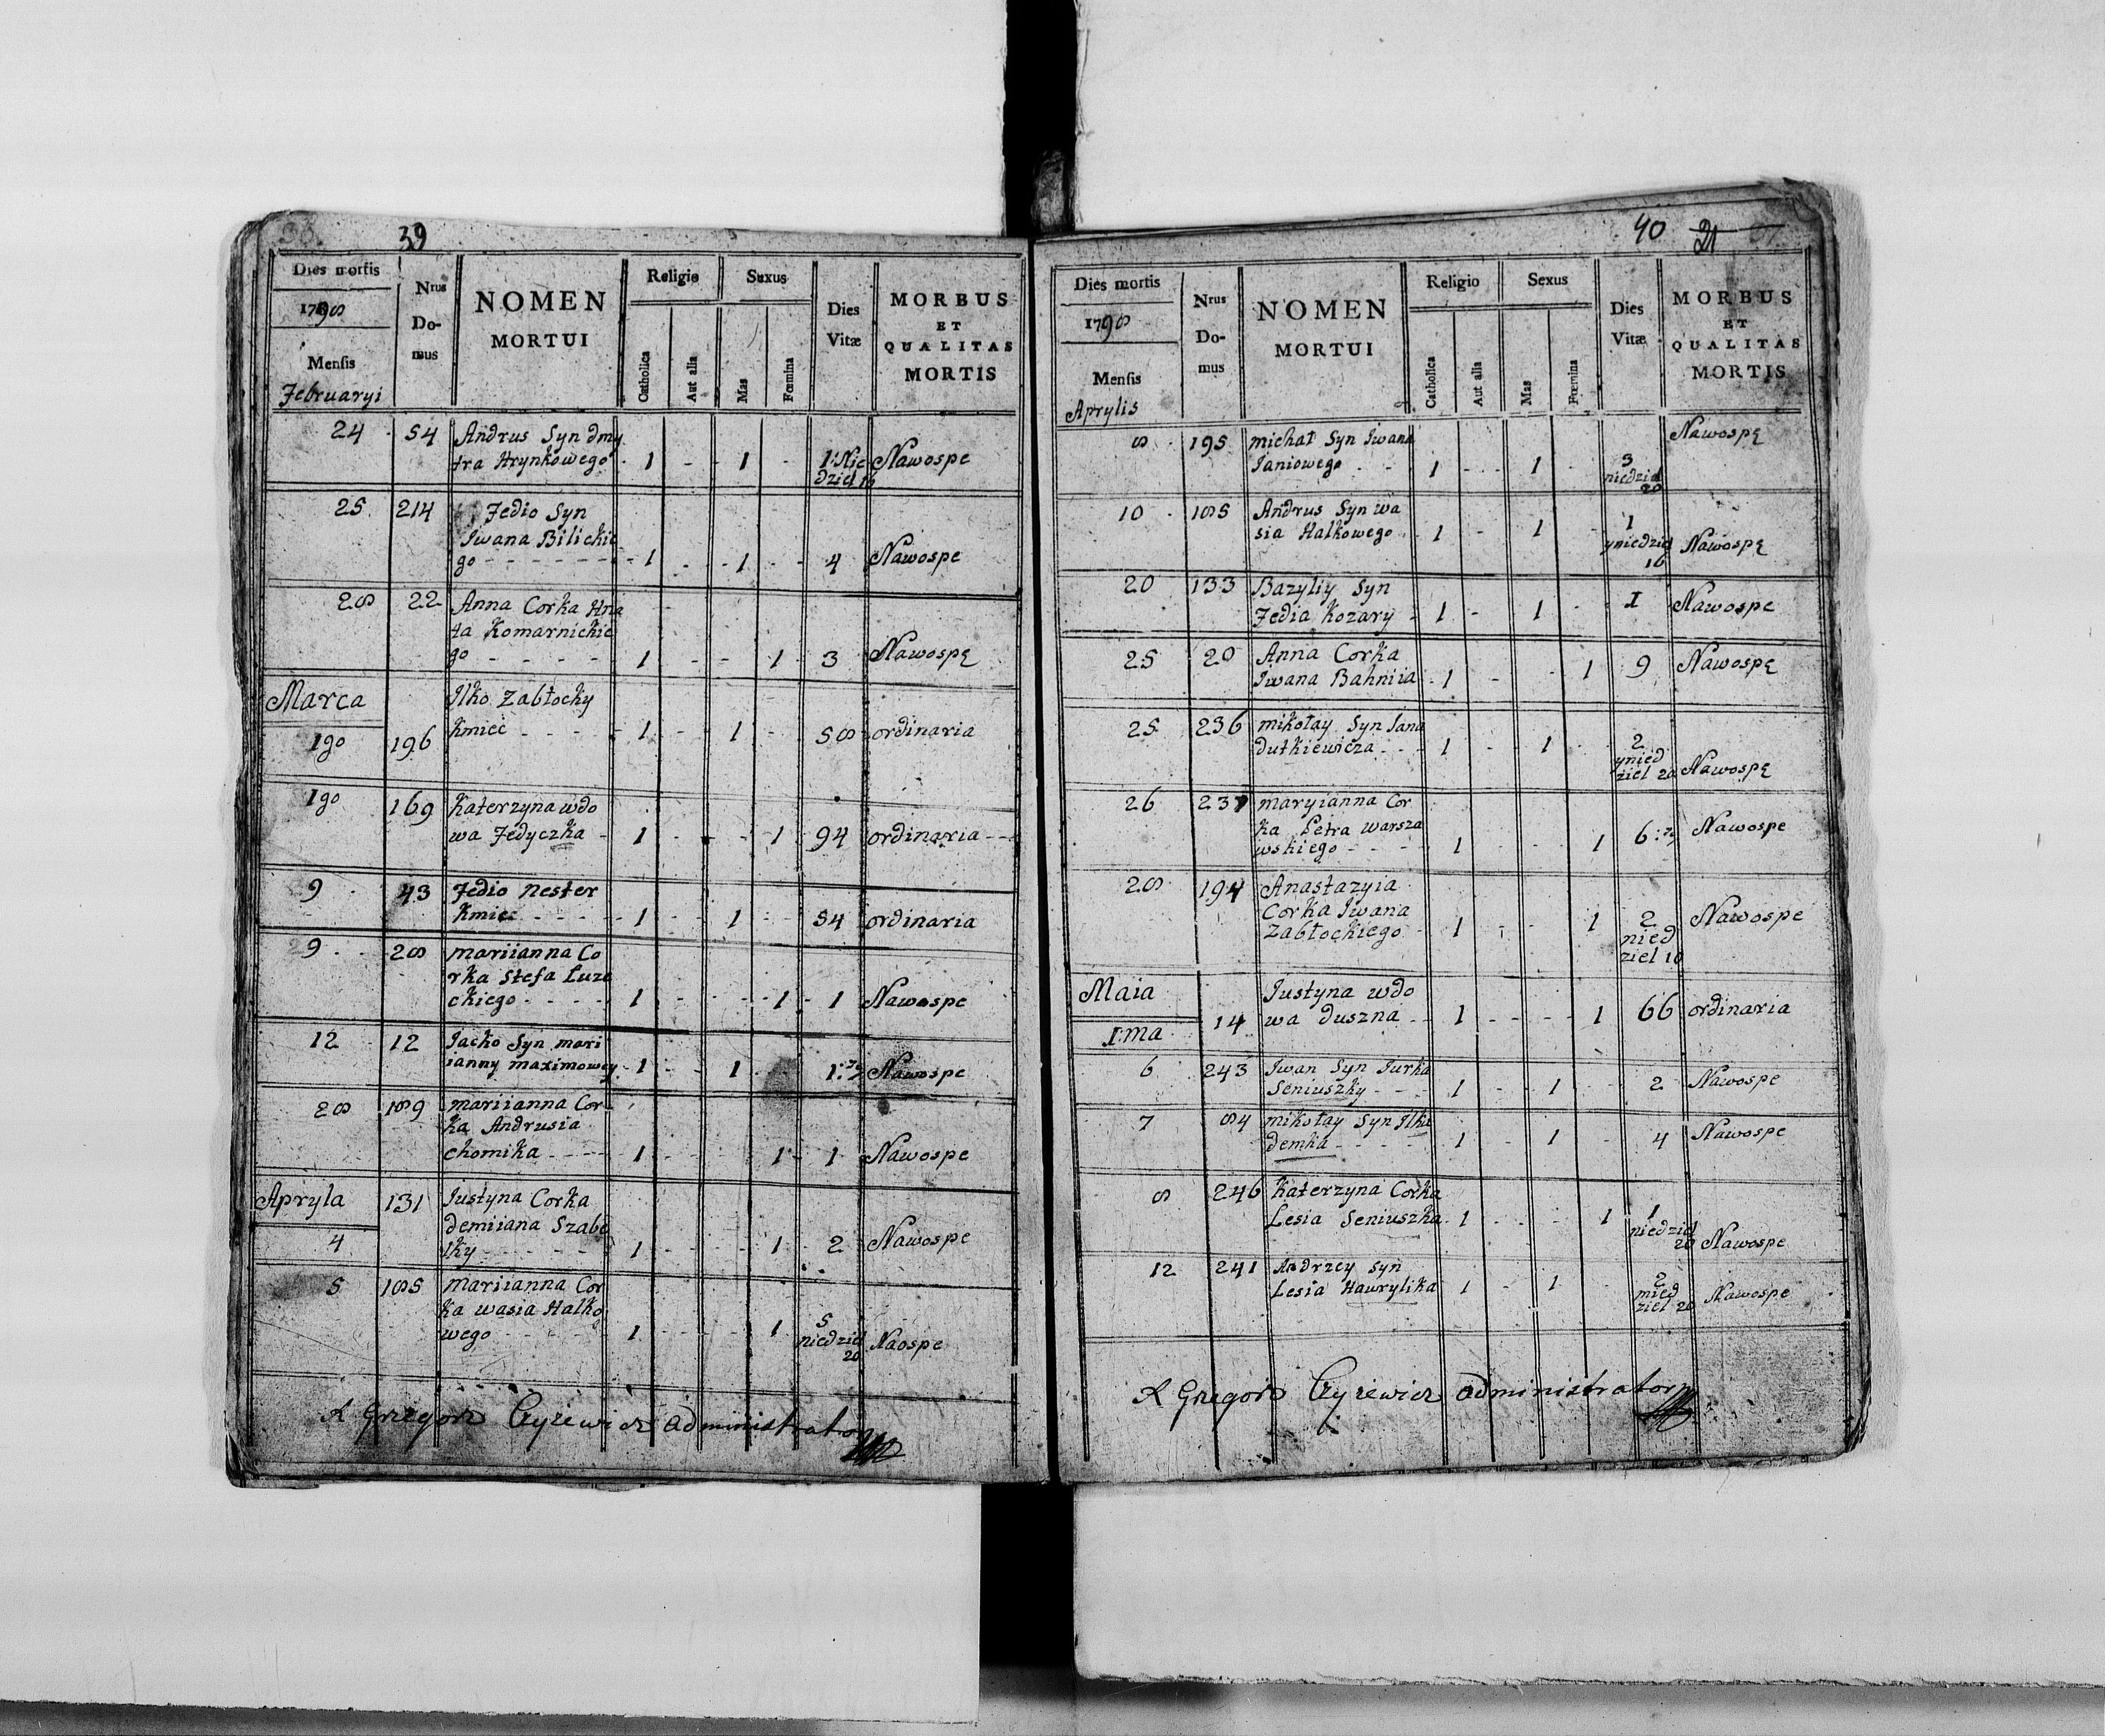 39
Dies mortis
1798
Mensis
Februaryi
Nrus Do-mus
NOMEN MORTUI
Religio
Catholica
Aut alia
Sexus
Mas
Fœmina
Dies Vitæ
MORBUS ET QUALITAS MORTIS
24 54 Andrus Syn dmy
tra Hrynkowego 1 - - 1 - 1: Nie Nawospe
dziel 16
25 214 Fedio Syn
Jwana Bilickie
go - - - - - - 1 - - 1 - - 4 Nawospe
28 22 Anna Corka Hna
ta Komarnickie
go - - - - - 1 - - 1 3 Nawospę
Marca
1go 196 Jlko Zabłocky
Kmieć - - - - 1 - - 1 - 58 ordinaria
1go 169 Katerzyna wdo
wa Fedyczka - 1 - - - 1 94 ordinaria - -
9 43 Fedio Nester
Kmiec - - - - 1 - - 1 - - 54 ordinaria
9 28 mariianna Co
rka Stefa Łuze
ckiego - - - - 1 - - - - 1 - 1 Nawospe
12 12 Jacko Syn mari
ianny maximowey 1 - - 1 - - 1: Nawospe
28 189 mariianna Cor
ka Andrusia
chomika - - - 1 - - - 1 - 1 Nawospe
Apryla
4 131 Justyna Corka
demiiana Szabe
lky - - - - - 1 - - - 1 - 2 Nawospe
5 185 Mariianna Cor
ka wasia Halko
wego - - - - 1 - - - 1 5 niedziel 20 Naospe
A Gregorz Cyrewicz administrator
40 21
Dies mortis
1798
Mensis
Aprylis
Nrus Do-mus
NOMEN MORTUI
Religio
Catholica
Aut alia
Sexus
Mas
Fœmina
Dies Vitæ
MORBUS ET QUALITAS MORTIS
8 195 michał Syn Jwana Nawospę
Janiowego - - 1 - - - 1 - 3 niedziel
20
10 185 Andrus Syn wa
sia Halkowego 1 - 1 - 1 yniedziel Nawospę
16
20 133 Bazyliy Syn
Fedia Kozary - 1 - 1 - 1 Nawospe
25 20 Anna Corka
Jwana Bahniia 1 - - 1 9 Nawospę
25 236 mikołay Syn Jana
dutkiewicza - - - 1 - - 1 - - 2 ynied
ziel 20 Nawospę
26 237 maryianna Cor
ka Petra warsza
wskiego - - - - 1 - - - 1 6: Nawospe
28 194 Anastazyia
Corka Jwana
Zabłockiego - 1 - - - 1 2 nied
ziel 10 Nawospe
Maia
1:ma 14 Justyna wdo
wa duszna - - 1 - - - - 1 66 ordinaria
6 243 Jwan Syn Jurka
Seniuszky - - - 1 - - 1 - - 2 Nawospe
7 84 mikołay Syn Jlka
demka - - - - 1 - - 1 - 4 Nawospe
8 246 Katerzyna Corka
Lesia Seniuszka 1 - - - 1 1 niedziel
20 Nawospe
12 241 Andrzey Syn
Lesia Hawrylika 1 - 1 - - 2 nied
ziel 20 Nawospe
A Gregorz Cyrewicz administrator